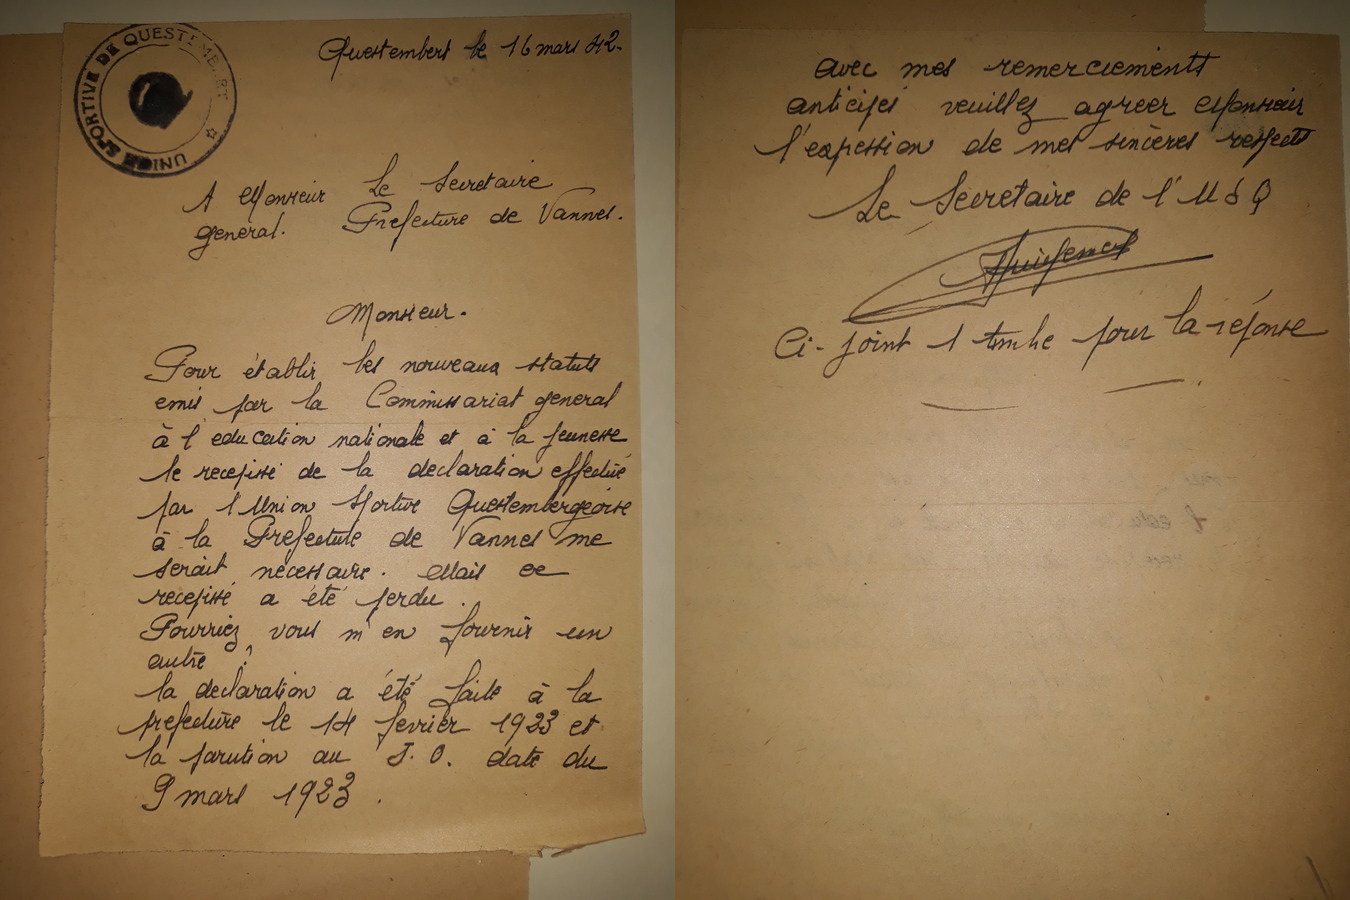 UNION SPORTIVE DE QUESTEMBERT
Questembert le 16 mars 42.
A Monsieur Le Secretaire
general. Prefecture de Vannes.
Monsieur.
Pour établir les nouveaux statuts
emis par la Commissariat general
à l'education nationale et à la jeunesse
le recepissé de la declaration effectué
par l'Union Sportive Questembergeoise
à la Prefecture de Vannes me
serait necessaire. Mais ce
recepissé a été perdu.
Pourriez vous m'en fournir un
autre ?
la declaration a été faite à la
prefecture le 14 fevrier 1923 et
la parution au J.O. date du
9 mars 1923.
avec mes remerciements
anticipés veuillez agreer Monsieur
l'expession de mes sincères respects
Le Secretaire de l'U S Q
Ci-joint 1 timbre pour la réponse